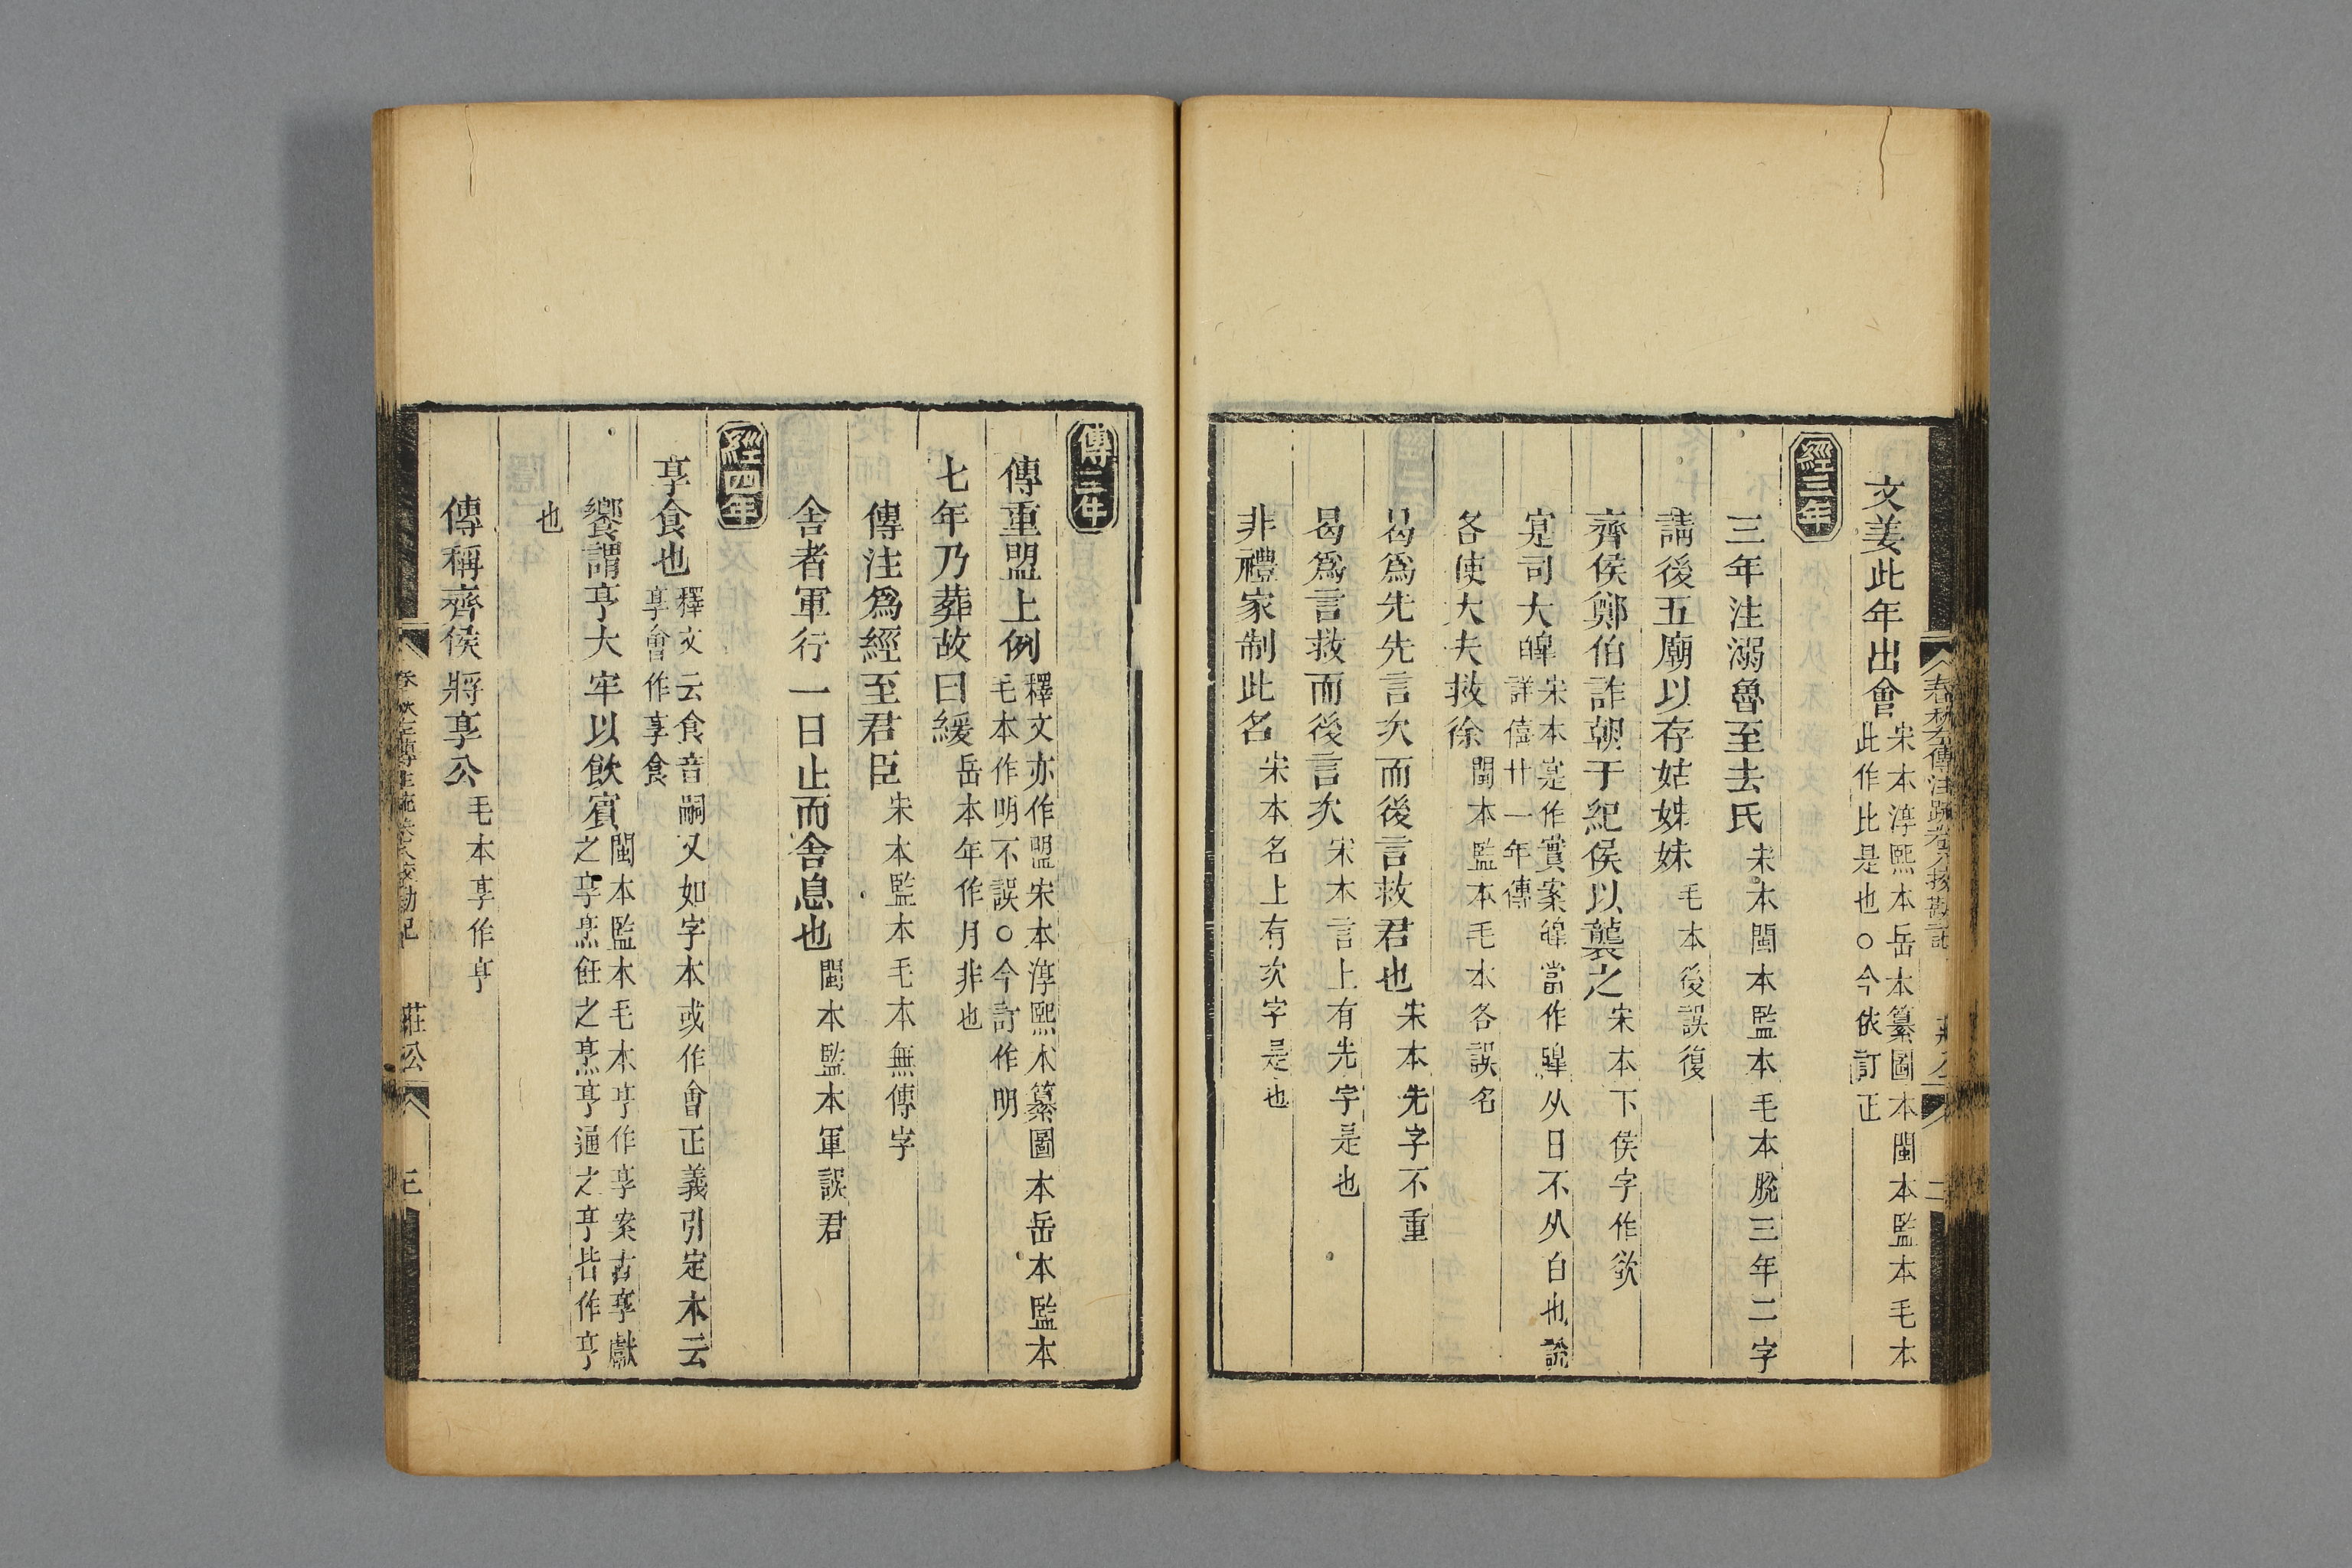 文姜此年出會宋本淳熙本岳本纂圖本閩本監本毛本此作比是也○今依訂正
經三年
三年注溺魯至去氏宋本閩本監本毛本脫三年二字
請後五廟以存姑姊妹毛本後誤復
齊侯鄭伯詐朝于紀侯以襲之宋本下侯字作欲
寔司大皥宋本寔作實案皥當作暤从日不从白也說詳僖廿一年傳
各使大夫救徐閩本監本毛本各誤名
曷爲先先言次而後言救君也宋本先字不重
曷爲言救而後言次宋本言上有先字是也
非禮家制此名宋本名上有次字是也
春秋左傳注疏卷八挍勘記 莊公 二
傳三年
傳重盟上例釋文亦作盟宋本淳熙本纂圖本岳本監本毛本作明不誤○今訂作明
七年乃葬故曰緩岳本年作月非也
傳注爲經至君臣宋本監本毛本無傳字
舍者軍行一日止而舍息也閩本監本軍誤君
經四年
享食也釋文云食音嗣又如字本或作會正義引定本云享會作享食
饗謂亨大牢以飲賓閩本監本毛本亨作享案古享獻之享烹飪之烹亨通之亨皆作亨
也
傳稱齊侯將享公毛本享作亨
春秋左傳注疏卷八挍勘記 莊公 三